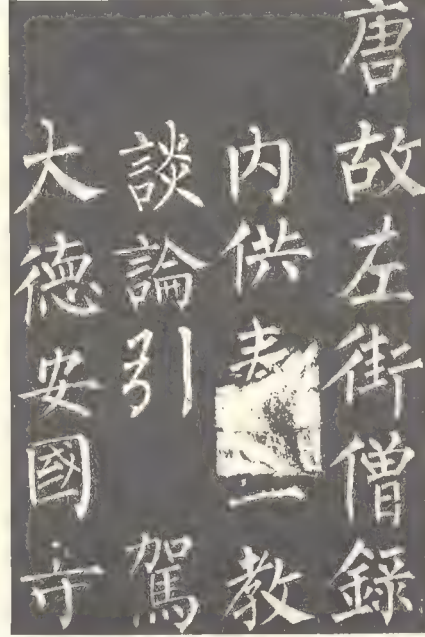 唐故左街僧錄
内供教
談論引 駕
大德安國寺